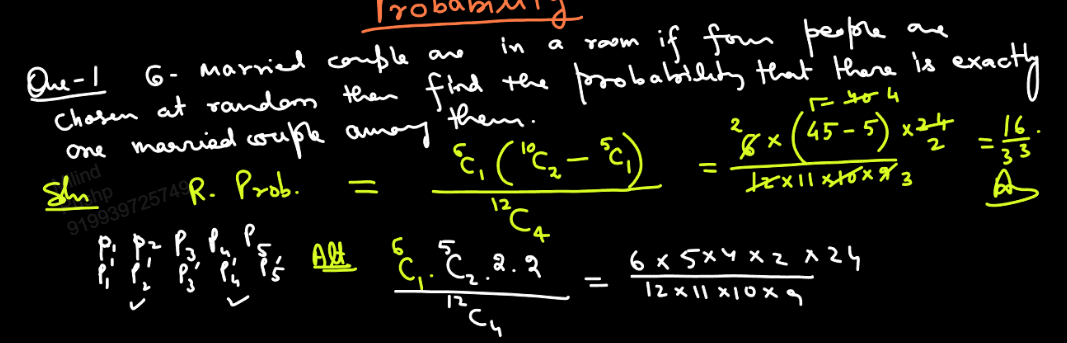 Probability
Que-1 6- married couple are in a room if four people are
chosen at random then find the probability that there is exactly
one married couple among them.
Soln R. Prob. = ⁶C₁ (¹⁰C₂ - ⁵C₁) / ¹²C₄ = 6 × (45-5) × 24/2 / 12×11×10×9 = 16/33 Ans
P₁ P₂ P₃ P₄ P₅
P₁' P₂' P₃' P₄' P₅'
Alt ⁶C₁ . ⁵C₂ . 2 . 2 / ¹²C₄ = 6 × 5 × 4 × 2 × 24 / 12×11×10×9